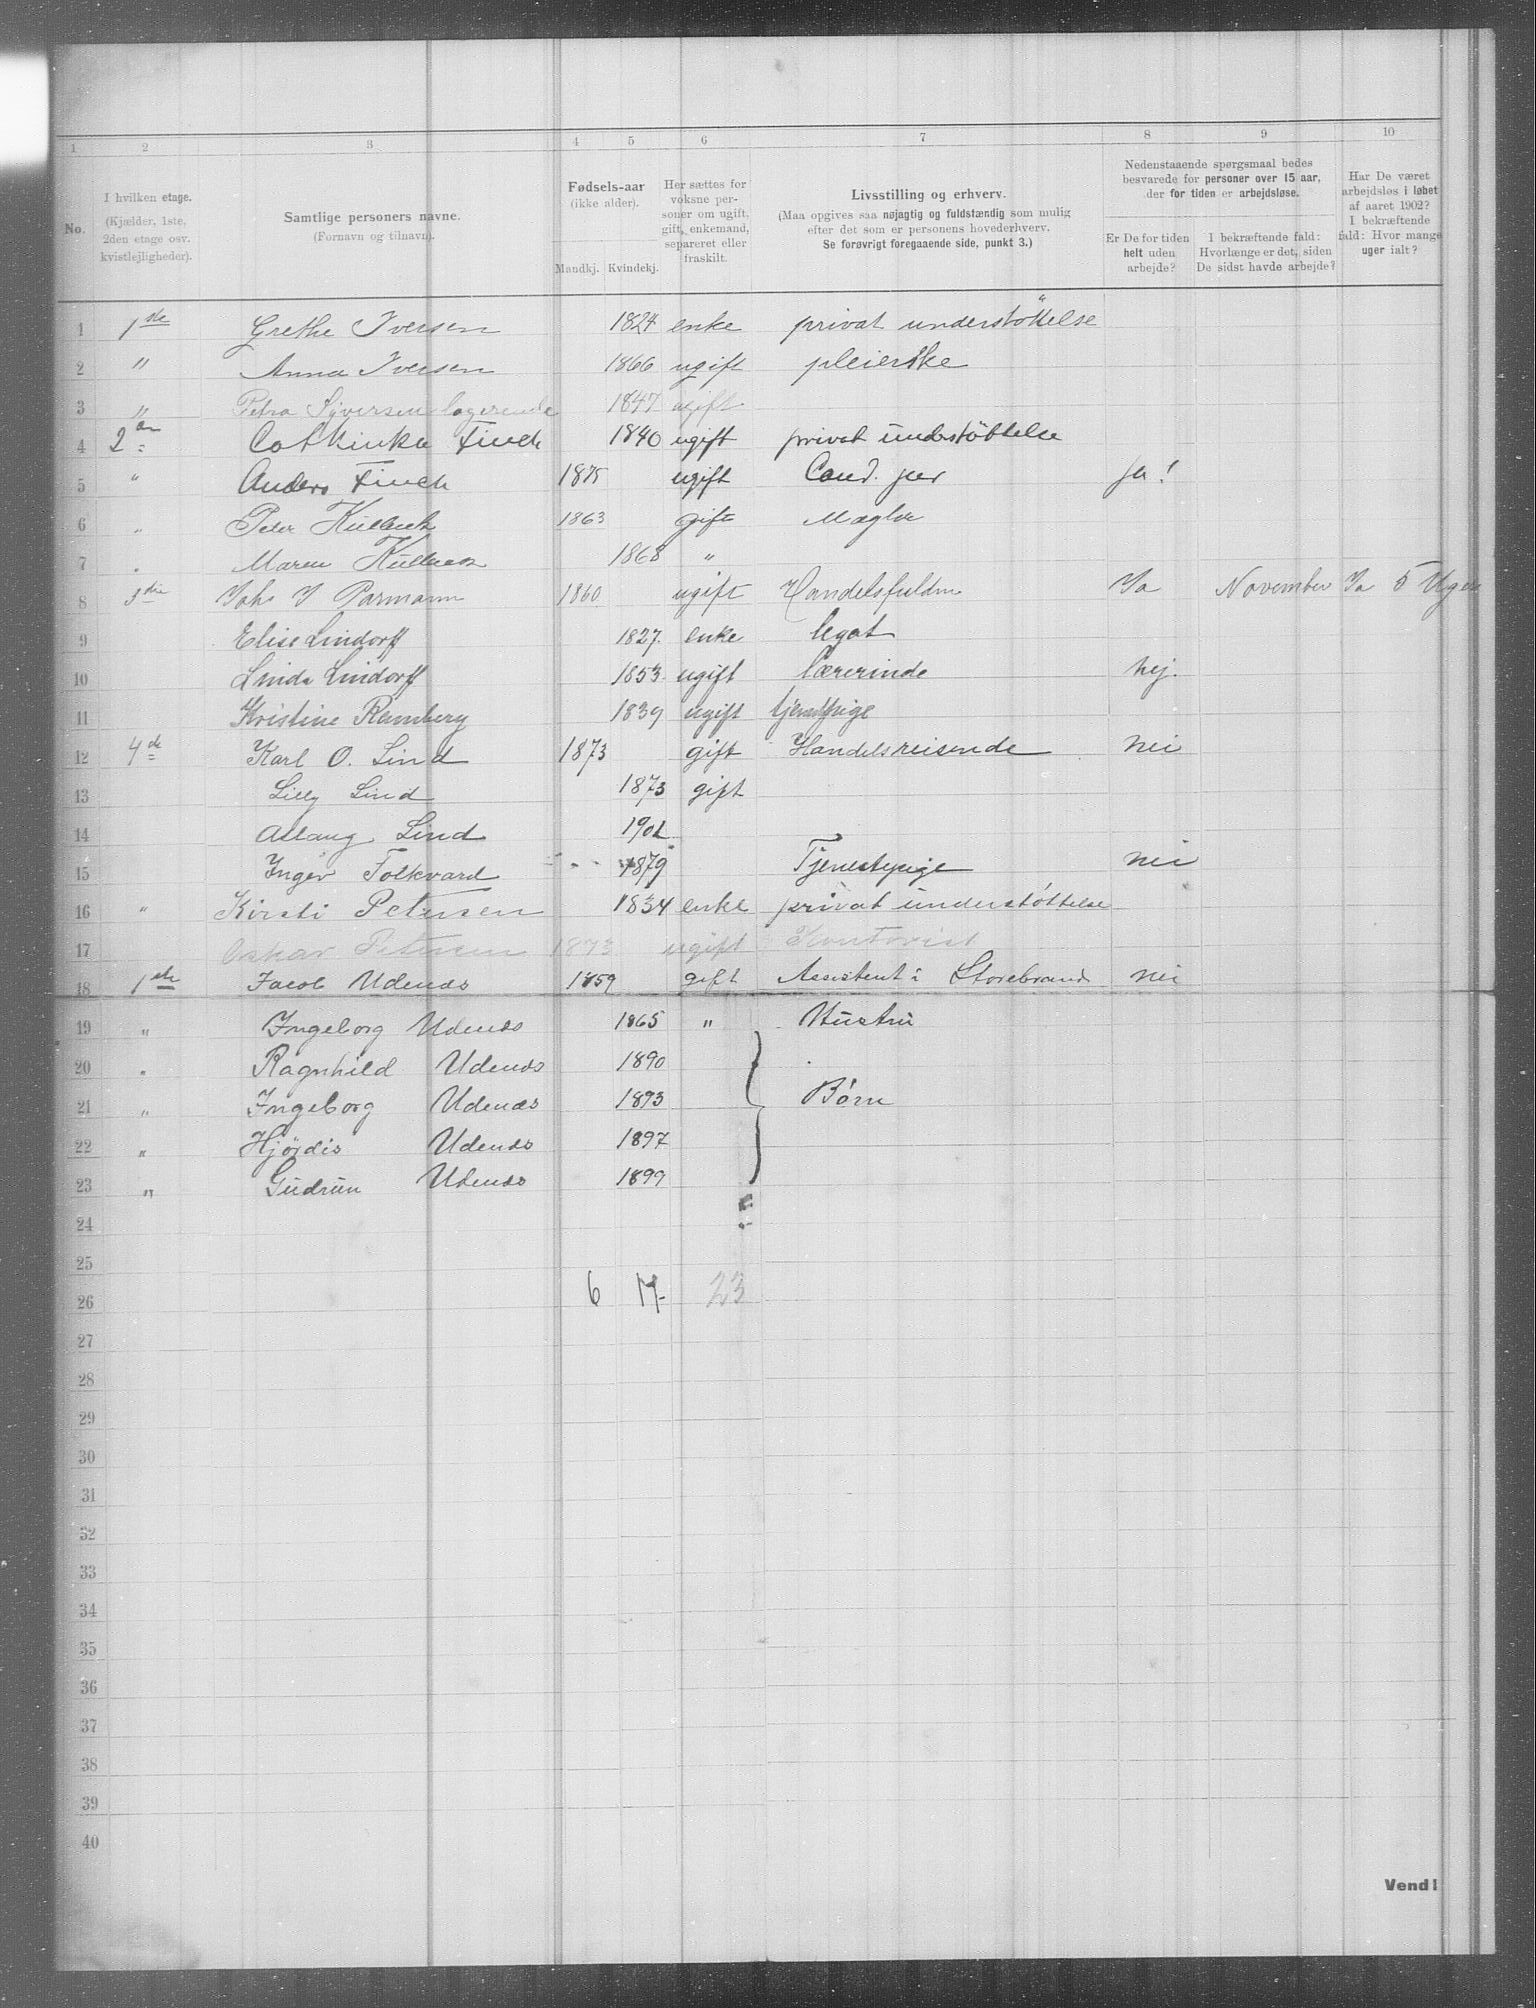 1 2 3 4 5 6 7 8 9 10
No.
I hvilken etage. (Kjælder, 1ste, 2den etage osv. kvistlejligheder).
Samtlige personers navne. (Fornavn og tilnavn).
Fødsels-aar (ikke alder). Mandkj. Kvindekj.
Her sættes for voksne personer om ugift, gift, enkemand, separeret eller fraskilt.
Livsstilling og erhverv. (Maa opgives saa nøjagtig og fuldstændig som mulig efter det som er personens hovederhverv. Se forøvrigt foregaaende side, punkt 3.)
Nedenstaaende spørgsmaal bedes besvarede for personer over 15 aar, der for tiden er arbejdsløse.
Er De for tiden helt uden arbejde?
I bekræftende fald: Hvorlænge er det, siden De sidst havde arbejde?
Har De været arbejdsløs i løbet af aaret 1902? I bekræftende fald: Hvor mange uger ialt?
1 1ste Grethe Iversen 1824 enke privat understöttelse
2 " Anna Iversen 1866 ugift pleierske
3 " Petra Syversen logerende 1847 ugift
4 2 Cathinka Finch 1840 ugift privat understöttelse
5 " Anders Finch 1875 ugift Cand. jur ja!
6 " Peter 1863 gift Mægler
7 " Maren 1868 "
8 3die Johs J Parmann 1860 ugift Handelsfuldm Ja November Ja 5 Uger
9 Elise Lindorff 1827. enke legat
10 Linda Lindorff 1853. ugift Lærerinde nej.
11 Kristine Ramberg 1839 ugift tjenestpige
12 4de Karl O. Lind 1873 gift Handelsreisende nei
13 Lilly Lind 1873 gift
14 Aslaug Lind 1902
15 Inger Folkvard 1879 Tjenestepige nei
16 " Kirsti Petersen 1834 enke privat understöttelse
17 Oskar Petersen 1873 ugift Kontorist
18 1ste Jacob Udenæs 1859 gift Assistent i Storebrand nei
19 " Ingeborg Udenæs 1865 " Hustru
20 " Ragnhild Udenæs 1890
21 " Ingeborg Udenæs 1893 Børn
22 " Hjørdis Udenæs 1897
23 " Gudrun Udenæs 1899
24
25
26 6 17- 23
27
28
29
30
31
32
33
34
35
36
37
38
39
40
Vend!